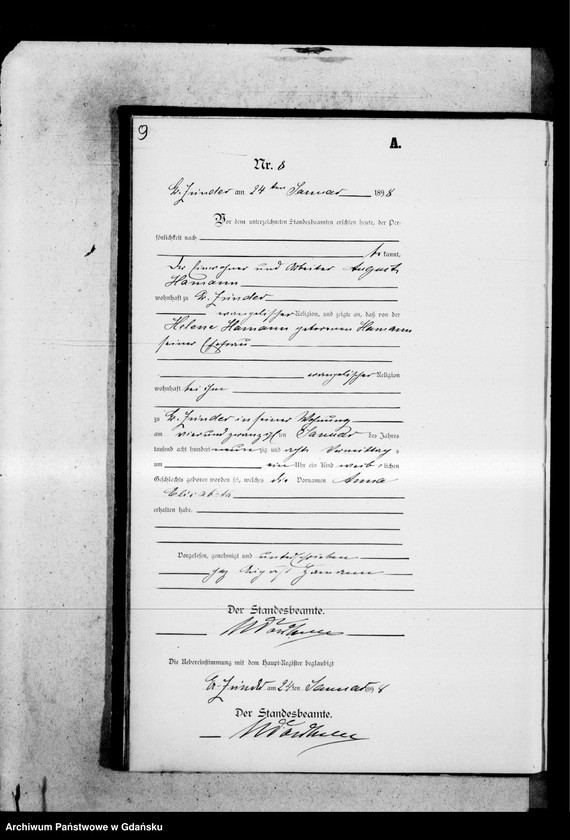 9
A.
Nr. 8
Gr. Zünder am 24ten Januar 1898
Vor dem unterzeichneten Standesbeamten erschien heute, der Per-
sönlichkeit nach
be kannt,
der Einwohner und Arbeiter August
Hamann
wohnhaft zu Gr. Zünder
evangelischer Religion, und zeigte an, daß von der
Helene Hamann geborenen Hamann
seiner Ehefrau
evangelischer Religion
wohnhaft bei ihm
zu Gr. Zünder in seiner Wohnung
am vierundzwanzigsten Januar des Jahres
tausend acht hundert neunzig und acht Vormittags
um ein Uhr ein Kind weiblichen
Geschlechts geboren worden sei, welches die Vornamen Anna
Elisabeth
erhalten habe.
Vorgelesen, genehmigt und unterschrieben
gez August Hamann
Der Standesbeamte.
Die Uebereinstimmung mit dem Haupt-Register beglaubigt
Gr. Zünder am 24ten Januar 1898
Der Standesbeamte.
Archiwum Państwowe w Gdańsku